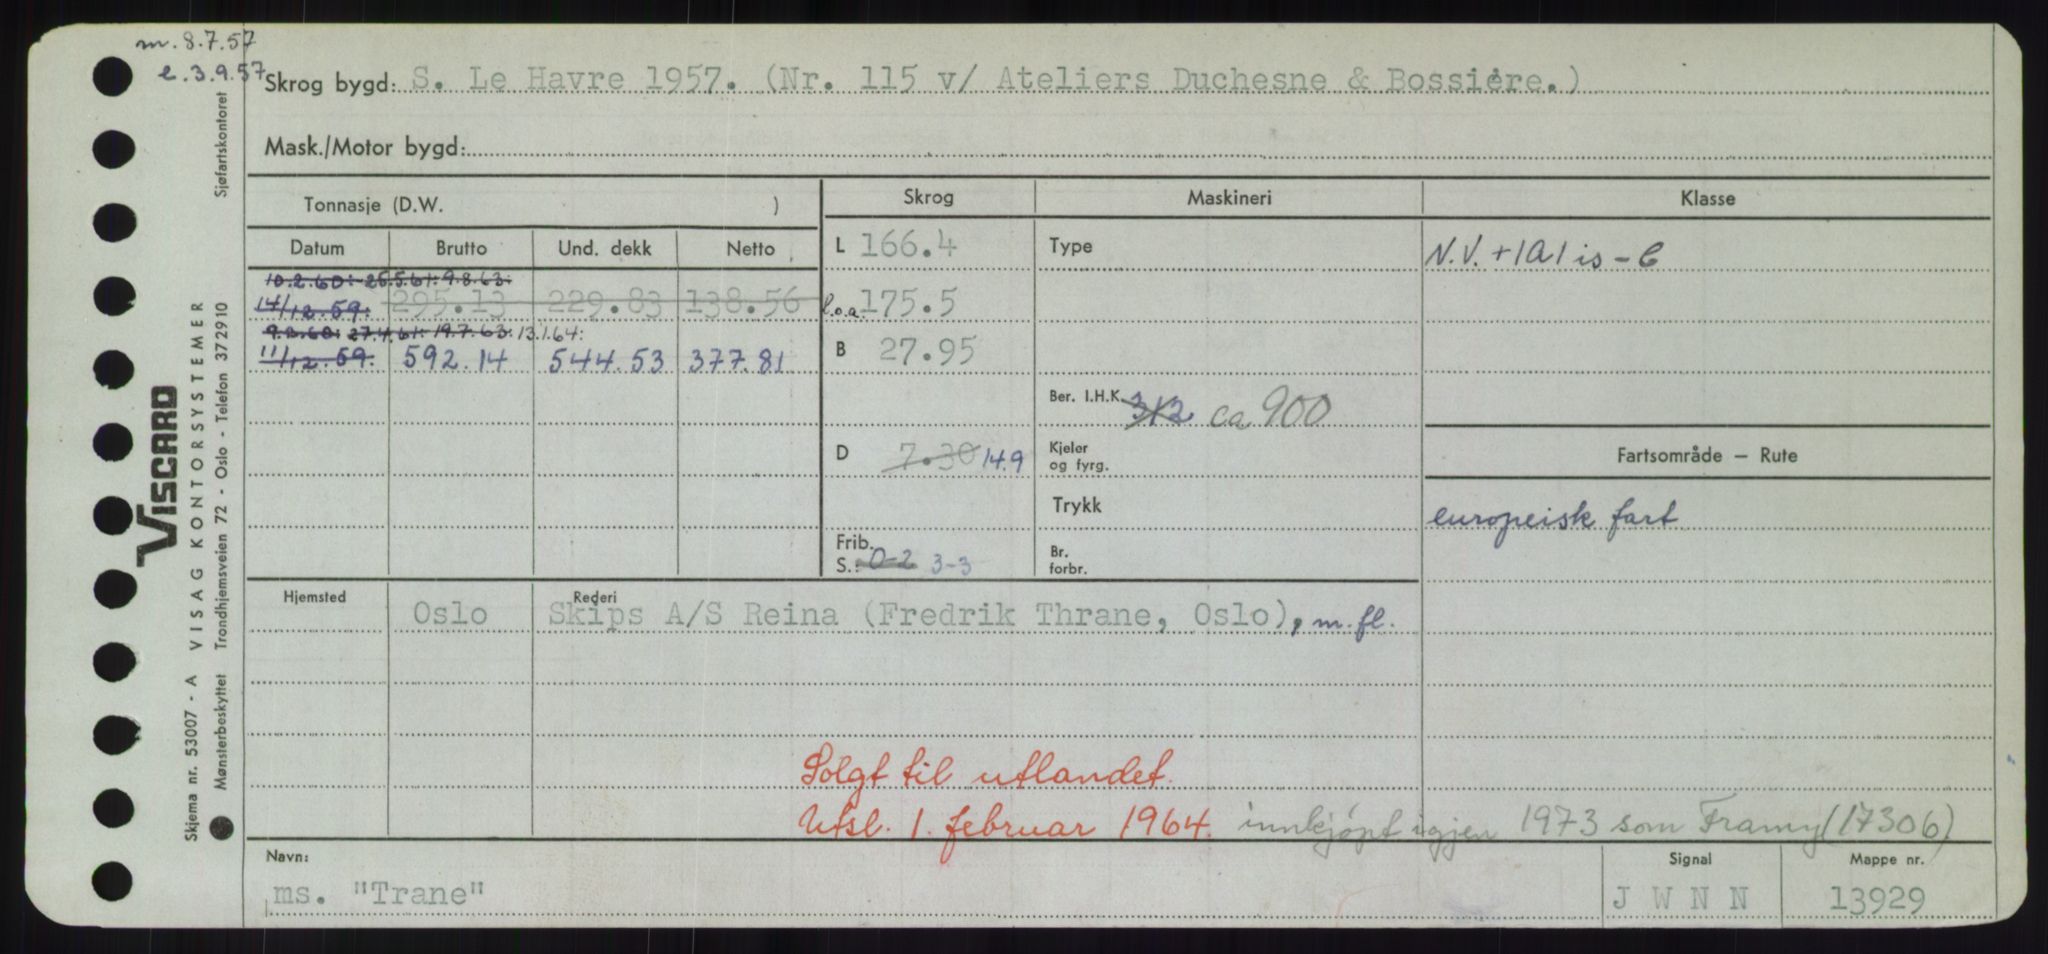 m. 8.7.57
e. 3.9.57
Skrog bygd: S. Le Havre 1957. (Nr. 115 v/ Ateliers Duchesne & Bossière.)
Mask./Motor bygd:
Tonnasje (D.W. )
Skrog
Maskineri
Klasse
Datum Brutto Und. dekk Netto
L 166.4
Type
N.V. +1A1 is - C
10.2.60: 25.5.61: 9.8.63:
14/12.59. 295.13 229.83 138.56
l.o.a. 175.5
9.2.60: 27.4.61: 19.7.63: 13.1.64:
11/12.59. 592.14 544.53 377.81
B 27.95
Ber. I.H.K. 312 ca 900
D 7.30 14.9
Kjeler
og fyrg.
Fartsområde — Rute
Trykk
europeisk fart
Frib.
S.: 0-2 3-3
Br.
forbr.
Hjemsted Oslo
Rederi
Skips A/S Reina (Fredrik Thrane, Oslo), m.fl.
Solgt til utlandet.
Utsl. 1. februar 1964. innkjøpt igjen 1973 som Framy (17306)
Navn:
ms. "Trane"
Signal
J W N N
Mappe nr.
13929
VISCARD
Skjema nr. 53007 - A VISAG KONTORSYSTEMER
Mønsterbeskyttet Trondhjemsveien 72 - Oslo - Telefon 372910 Sjøfartskontoret